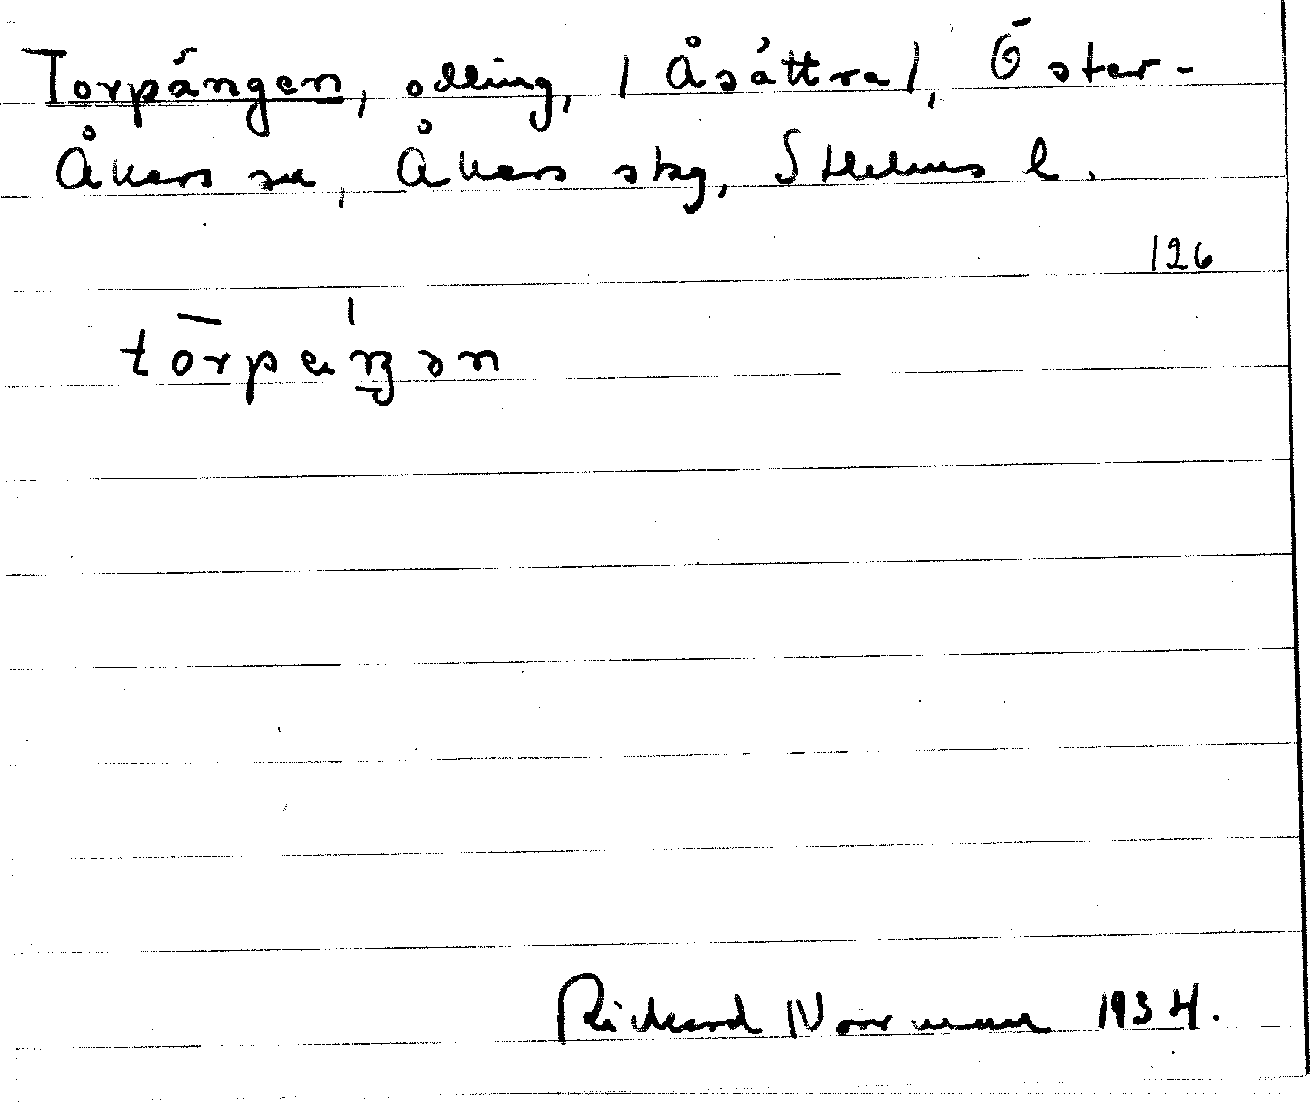 Torpängen, odling, (Åsättra), Öster-
Åkers sn, Åkers skg, Sthlms l.
126
tōrpäŋən
Rickard Norrman 1934.